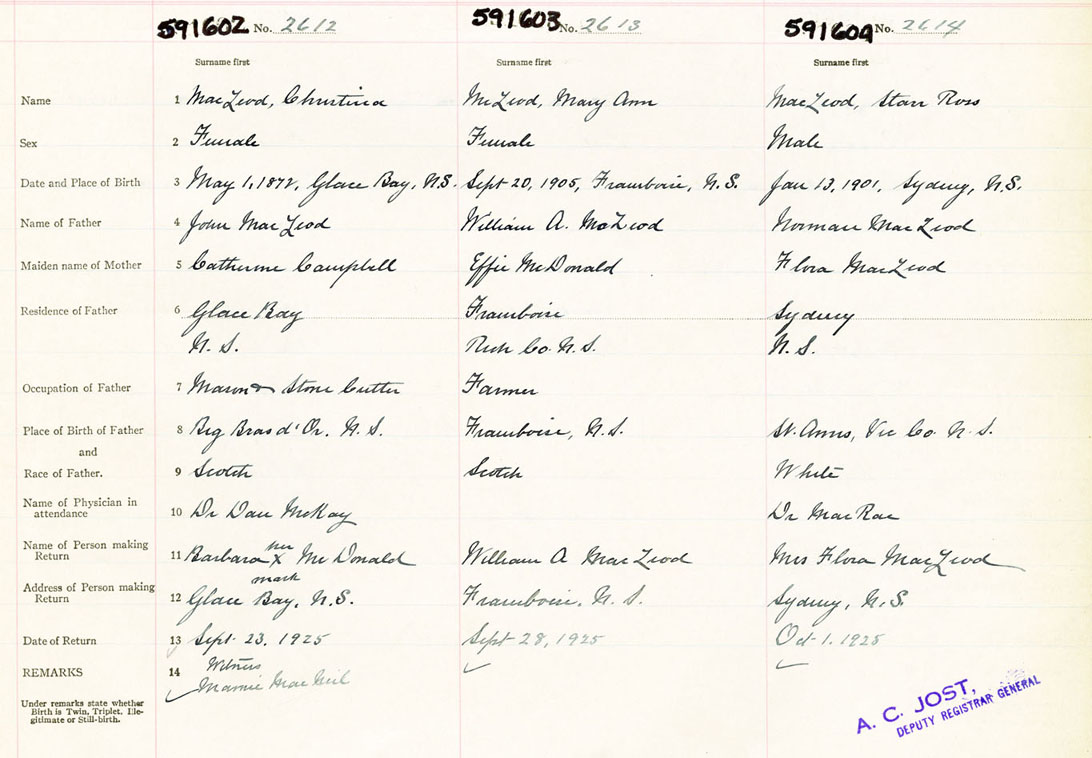 591602 No. 2612 591603 No. 2613 591604 No. 2614
Surname first Surname first Surname first
Name 1 MacLeod, Christina McLeod, Mary Ann MacLeod, Starr Ross
Sex 2 Female Female Male
Date and Place of Birth 3 May 1, 1872, Glace Bay, N.S. Sept 20, 1905, Framboise, N.S. Jan 13, 1901, Sydney, N.S.
Name of Father 4 John MacLeod William A. McLeod Norman MacLeod
Maiden name of Mother 5 Catherine Campbell Effie McDonald Flora MacLeod
Residence of Father 6 Glace Bay Framboise Sydney
N. S. Rich Co. N. S. N. S.
Occupation of Father 7 Mason & Stone Cutter Farmer
Place of Birth of Father 8 Big Bras d'Or, N. S. Framboise, N.S. St. Anns, Vic Co. N. S.
and
Race of Father. 9 Scotch Scotch White
Name of Physician in
attendance 10 Dr Dan McKay Dr MacRae
Name of Person making
Return 11 Barbara her X mark McDonald William A MacLeod Mrs Flora MacLeod
Address of Person making
Return 12 Glace Bay, N.S. Framboise, N. S. Sydney, N.S.
Date of Return 13 Sept. 23, 1925 Sept 28, 1925 Oct 1. 1925
REMARKS 14 Witness
Mamie MacNeil
Under remarks state whether
Birth is Twin, Triplet, Ille-
gitimate or Still-birth.
A. C. JOST,
DEPUTY REGISTRAR GENERAL